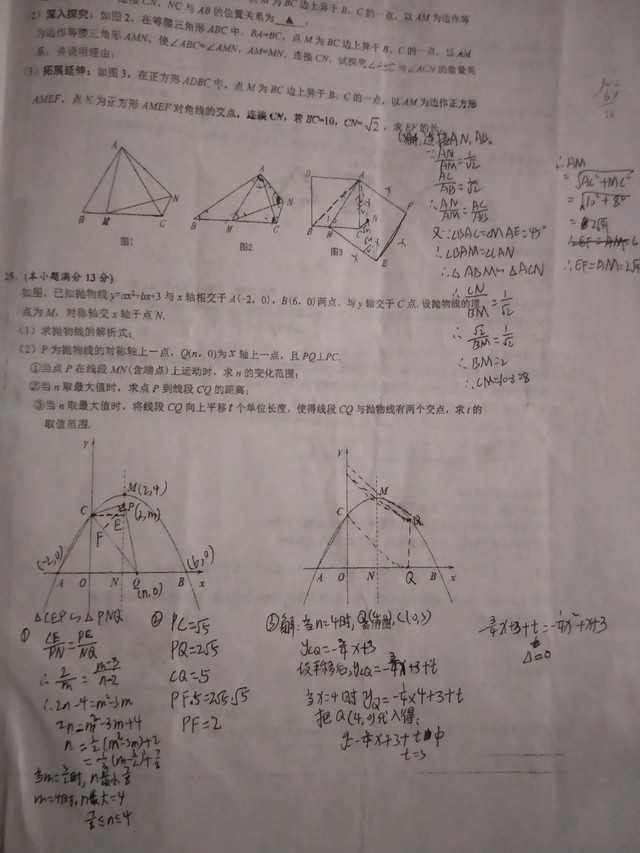 连接CN, NC与AB的位置关系为 ▲ .
2) 深入探究: 如图2, 在等腰三角形ABC中, BA=BC, 点M为BC边上异于B、C的一点, 以AM
为边作等腰三角形AMN, 使∠ABC=∠AMN, AM=MN, 连接CN, 试探究∠ABC与∠ACN的数量关
系, 并说明理由;
(3) 拓展延伸: 如图3, 在正方形ADBC中, 点M为BC边上异于B、C的一点, 以AM为边作正方形
AMEF, 点N为正方形AMEF对角线的交点, 连接CN, 若BC=10, CN=√2, 求EF的长.
A
B
M
C
N
图1
A
B
M
C
N
图2
D
A
B
M
C
N
F
E
图3
连接AN, AB.
∵ AN/AM = 1/√2
AC/AB = 1/√2
∴ AN/AM = AC/AB
又∵∠BAC=∠MAE=45°
∴∠BAM=∠CAN
∴△ABM∽△ACN
∴ CN/BM = 1/√2
∴ √2/BM = 1/√2
∴ BM=2
∴ CM=10-2=8
∴ AM
= √AC²+MC²
= √10²+8²
= 2√41
∴ EF=AM=2√41
25. (本小题满分13分)
如图, 已知抛物线y=ax²+bx+3与x轴相交于A(-2, 0), B(6, 0)两点, 与y轴交于C点, 设抛物线的顶
点为M, 对称轴交x轴于点N.
(1) 求抛物线的解析式;
(2) P为抛物线的对称轴上一点, Q(n, 0)为x轴上一点, 且PQ⊥PC.
①当点P在线段MN(含端点)上运动时, 求n的变化范围;
②当n取最大值时, 求点P到线段CQ的距离;
③当n取最大值时, 将线段CQ向上平移t个单位长度, 使得线段CQ与抛物线有两个交点, 求t的
取值范围.
y
M(2,4)
P
(2,m)
C
E
F
(-2,0)
(6,0)
A
O
N
Q
B
x
(n,0)
y
M
C
Q
A
O
N
Q
B
x
备用图
△CEP∽△PNQ
① CE/PN = PE/NQ
∴ 2/m = m-3/n-2
∴ 2n-4=m²-3m
2n=m²-3m+4
n=½(m²-3m)+2
=½(m-3/2)²+7/8
当m=3/2时, n最小7/8
m=4时, n最大=4
7/8≤n≤4
② PC=√5
PQ=2√5
CQ=5
PF·5=2√5·√5
PF=2
③ 解: 当n=4时, Q(4,0), C(0,3)
y_CQ=-¾x+3
设平移后, y_CQ=-¾x+3+t
当x=4时 y_Q=-¾×4+3+t
把Q(4,3)代入得:
t=3
-¾x+3+t=-¼x²+x+3
△=0